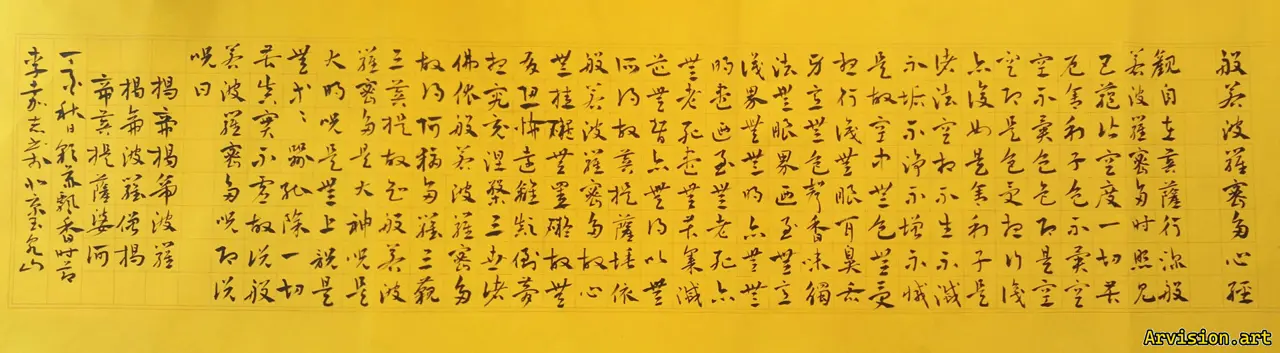 般若波羅蜜多心經
觀自在菩薩行深般
若波羅蜜多時照見
五蘊皆空度一切苦
厄舍利子色不異空
空不異色色即是空
空即是色受想行識
亦復如是舍利子是
諸法空相不生不滅
不垢不淨不增不減
是故空中無色無受
想行識無眼耳鼻舌
身意無色聲香味觸
法無眼界乃至無意
識界無無明亦無無
明盡乃至無老死亦
無老死盡無苦集滅
道無智亦無得以無
所得故菩提薩埵依
般若波羅蜜多故心
無罣礙無罣礙故無
有恐怖遠離顛倒夢
想究竟涅槃三世諸
佛依般若波羅蜜多
故得阿耨多羅三藐
三菩提故知般若波
羅蜜多是大神咒是
大明咒是無上咒是
無等等咒能除一切
苦真實不虛故說般
若波羅蜜多咒即說
咒曰
揭帝揭帝波羅
揭帝波羅僧揭
帝菩提薩婆訶
秋日飄香時節
李志北京玉泉山
Arvision.art